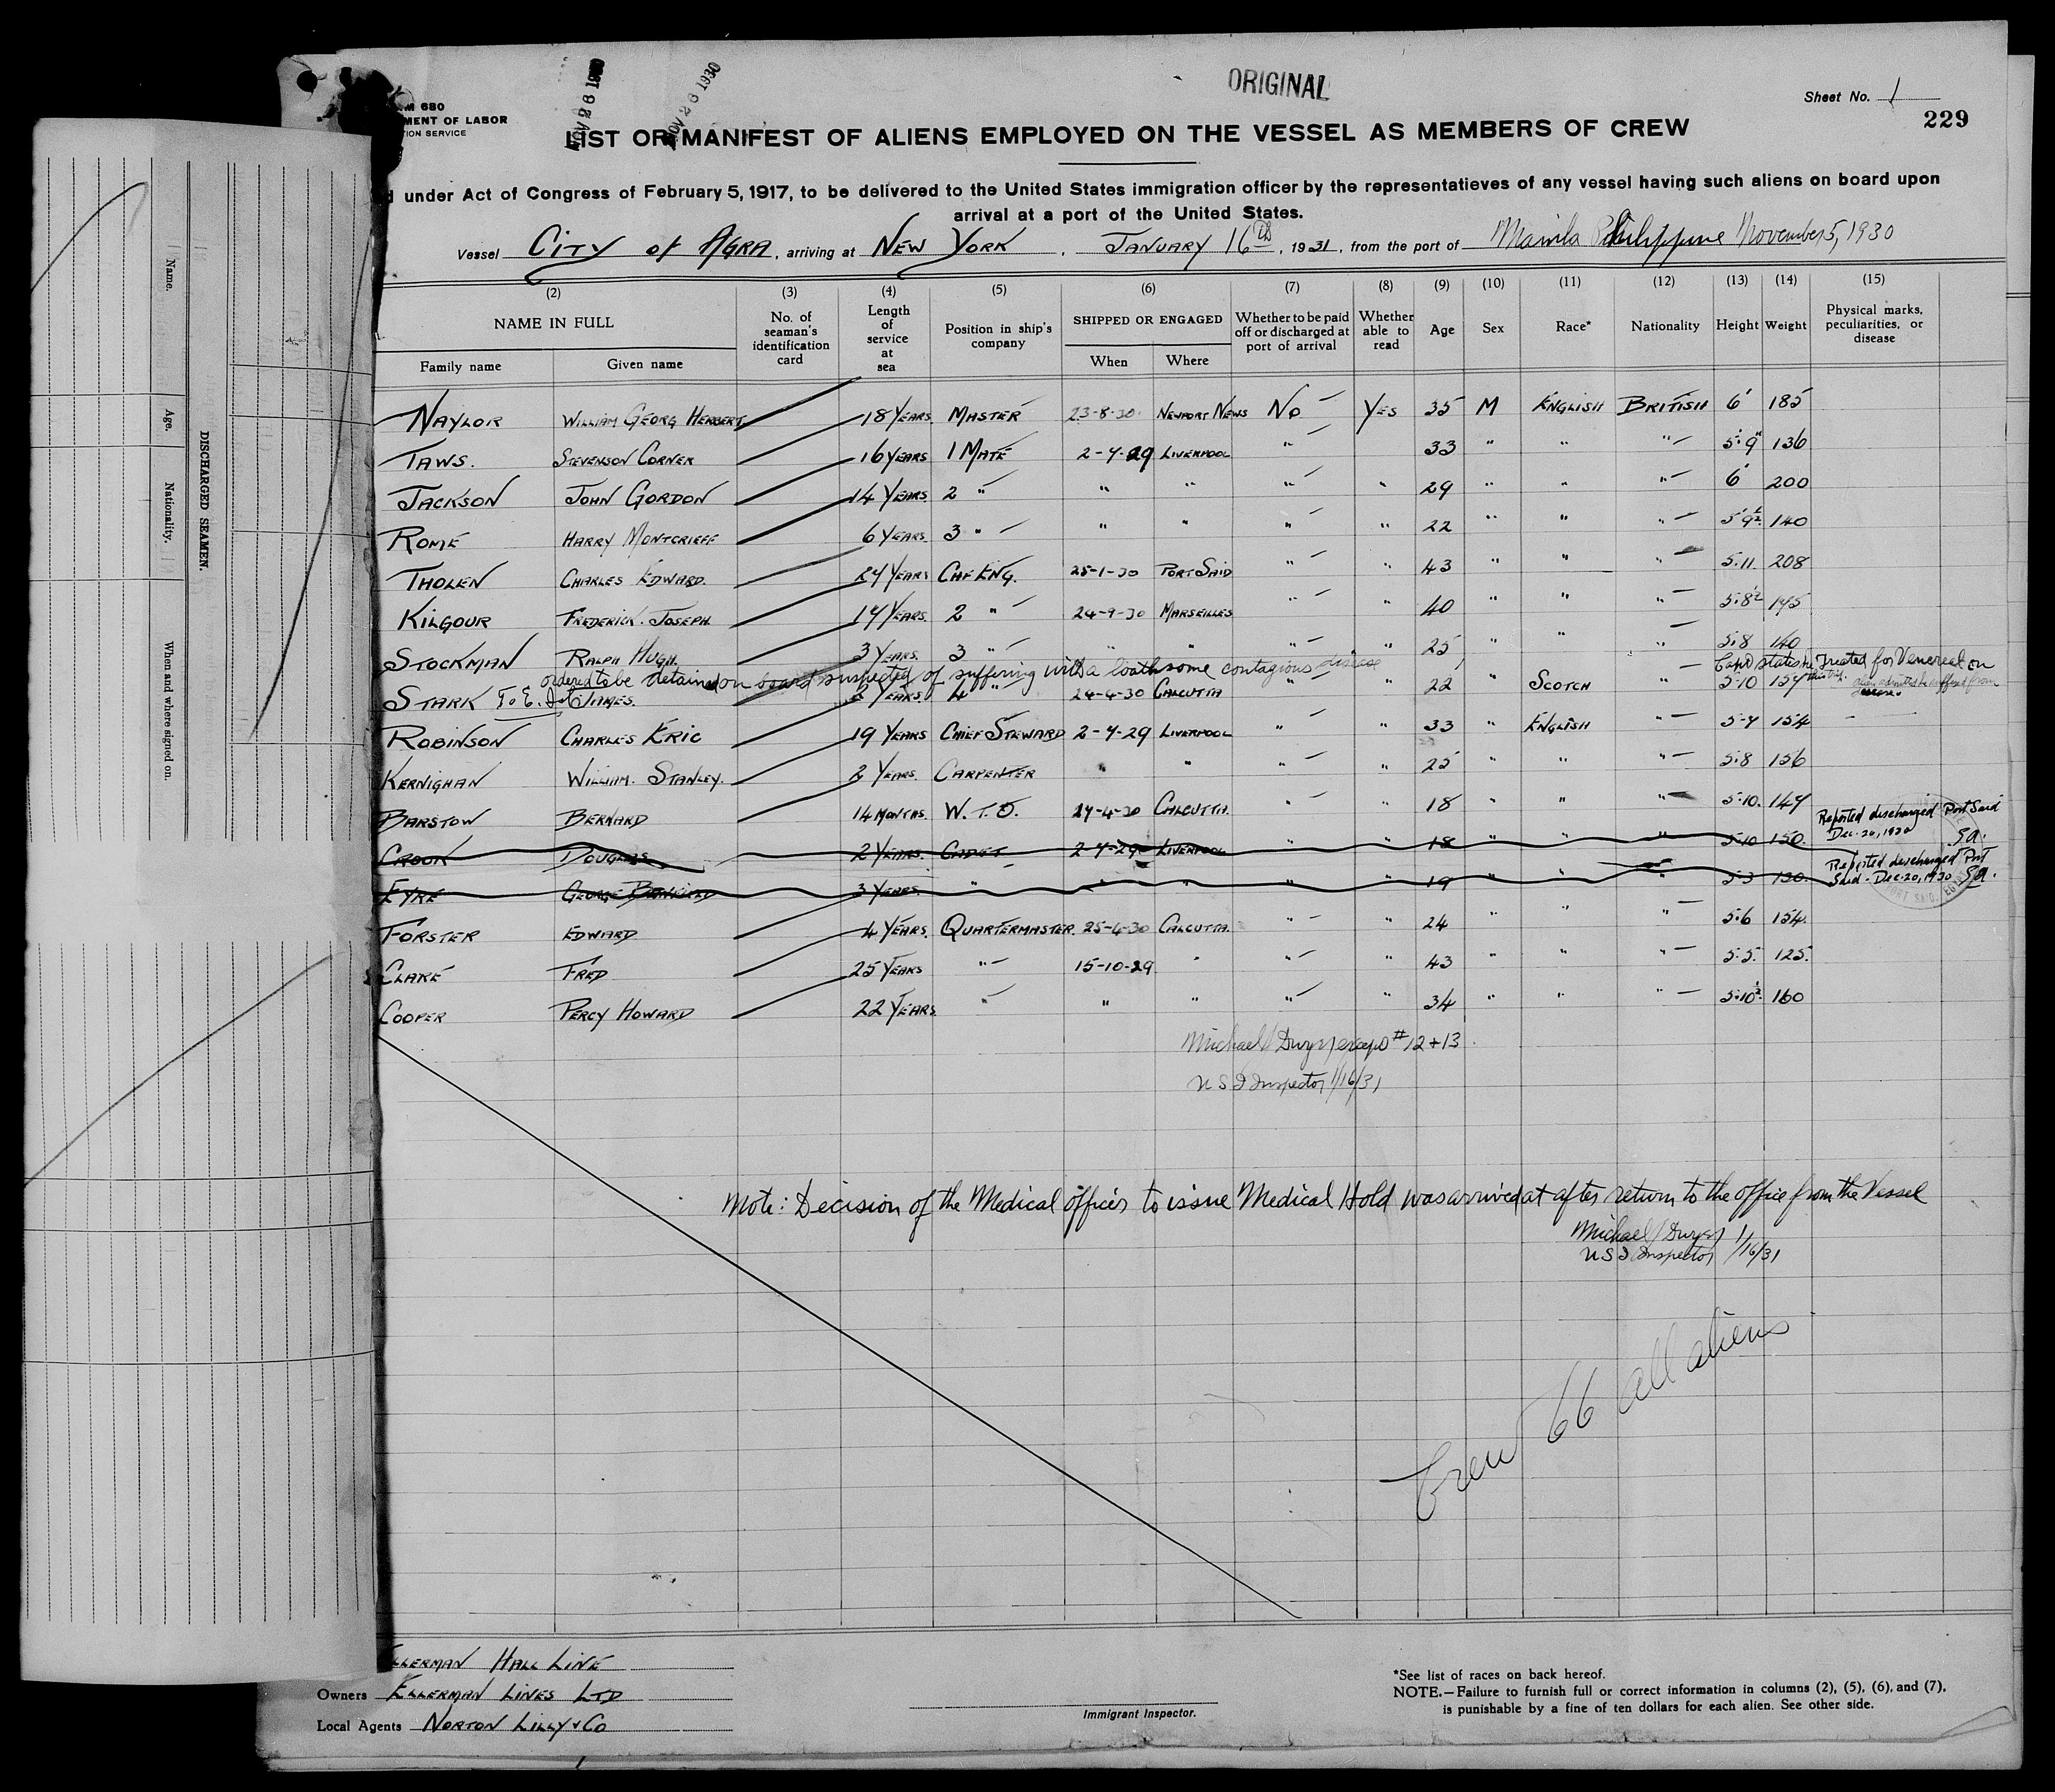 ORIGINAL
Sheet No. 1
229
M 680
MENT OF LABOR
TION SERVICE
NOV 26 1930
NOV 26 1930
LIST OR MANIFEST OF ALIENS EMPLOYED ON THE VESSEL AS MEMBERS OF CREW
d under Act of Congress of February 5, 1917, to be delivered to the United States immigration officer by the representatieves of any vessel having such aliens on board upon
arrival at a port of the United States.
Vessel CITY of AGRA, arriving at NEW YORK, JANUARY 16th, 1931, from the port of Manila Philippine November 5, 1930
(2) (3) (4) (5) (6) (7) (8) (9) (10) (11) (12) (13) (14) (15)
NAME IN FULL No. of seaman's identification card Length of service at sea Position in ship's company SHIPPED OR ENGAGED Whether to be paid off or discharged at port of arrival Whether able to read Age Sex Race* Nationality Height Weight Physical marks, peculiarities, or disease
Family name Given name When Where
NAYLOR WILLIAM GEORG HERBERT 18 YEARS MASTER 23-8-30 NEWPORT NEWS NO YES 35 M ENGLISH BRITISH 6' 185
TAWS. STEVENSON CORNER 16 YEARS 1 MATE 2-7-29 LIVERPOOL " 33 " " " 5'9" 136
JACKSON JOHN GORDON 14 YEARS 2 " " " " " 29 " " " 6' 200
ROME HARRY MONTCRIEFF 6 YEARS 3 " " " " " 22 " " " 5'9½ 140
THOLEN CHARLES EDWARD. 24 YEARS CHF ENG. 25-1-30 PORT SAID " " 43 " " " 5.11. 208
KILGOUR FREDERICK. JOSEPH. 17 YEARS. 2 " 24-9-30 MARSEILLES " " 40 " " " 5.8½ 175
STOCKMAN RALPH HUGH. 3 YEARS. 3 " " " " " 25 " " " 5.8 140
ordered to be detained on board suspected of suffering with a loathsome contagious disease
Capt states he treated for Venereal on this trip. alien admits he suffered from disease.
STARK JAMES. 2 YEARS. 4 " 24-4-30 CALCUTTA " " 22 " SCOTCH " 5.10 157
ROBINSON CHARLES ERIC 19 YEARS CHIEF STEWARD 2-7-29 LIVERPOOL " " 33 " ENGLISH " 5-7 154 -
KERNIGHAN WILLIAM. STANLEY. 2 YEARS. CARPENTER " " " " 25 " " " 5.8 156
BARSTOW BERNARD 14 MONTHS. W.T.O. 27-4-30 CALCUTTA. " " 18 " " " 5.10. 147
CROOK DOUGLAS 2 YEARS. CADET 2-7-29 LIVERPOOL " " 18 " " " 5.10 150. Reported discharged Port Said Dec. 20, 1930
EYRE GEORGE 3 YEARS. " " " " " 19 " " " 5.3 130. Reported discharged Port Said - Dec. 20, 1930
FORSTER EDWARD 4 YEARS. QUARTERMASTER. 25-4-30 CALCUTTA. " " 24 " " " 5.6 154.
CLARE FRED 25 YEARS " 15-10-29 " " " 43 " " " 5.5. 125.
COOPER PERCY HOWARD 22 YEARS " " " " " 34 " " " 5.10½ 160
Michael Dwyer except #12+13
U S I Inspector 1/16/31
Note: Decision of the Medical officer to issue Medical Hold was arrived at after return to the office from the Vessel
Michael Dwyer
U S I Inspector 1/16/31
Crew 66 all aliens
LLERMAN HALL LINE
Owners ELLERMAN LINES LTD
Local Agents NORTON LILLY & CO
Immigrant Inspector.
*See list of races on back hereof.
NOTE.—Failure to furnish full or correct information in columns (2), (5), (6), and (7),
is punishable by a fine of ten dollars for each alien. See other side.
DISCHARGED SEAMEN.
Name.
Age.
Nationality.
When and where signed on.